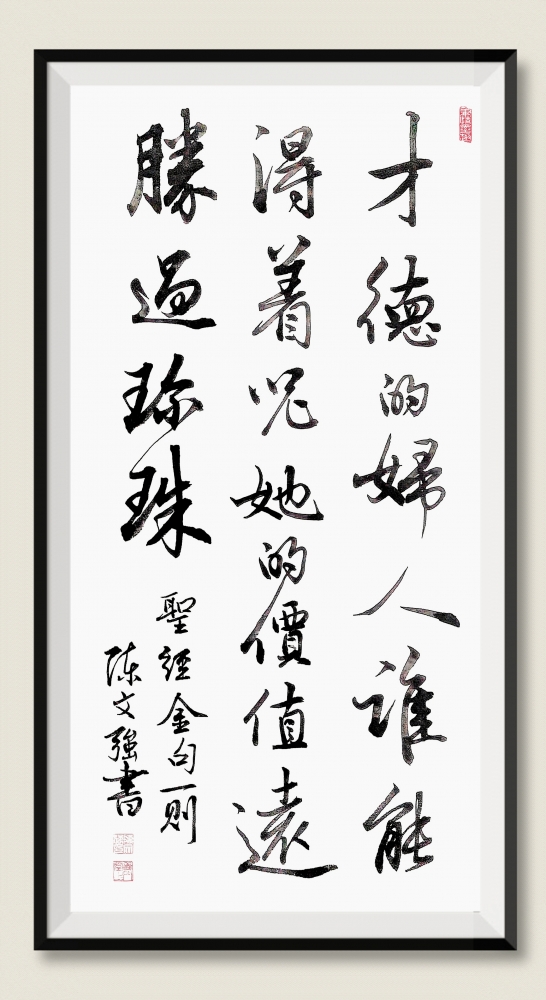 才德的婦人誰能
得着呢她的價值遠
勝過珍珠
聖經金句一則
陳文強書